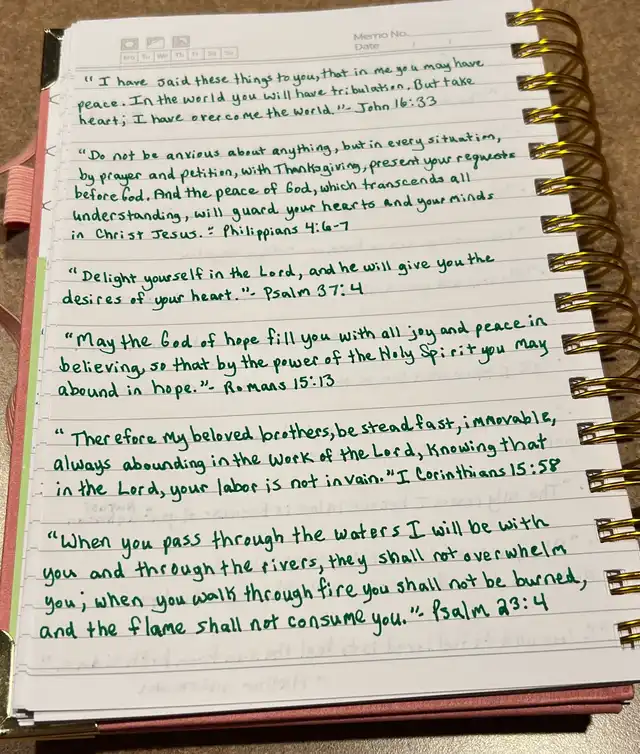 Memo No.
Date / /
Mo Tu We Th Fr Sa Su
"I have said these things to you, that in me you may have
peace. In the world you will have tribulation. But take
heart; I have overcome the world."- John 16:33
"Do not be anxious about anything, but in every situation,
by prayer and petition, with Thanksgiving, present your requests
before God. And the peace of God, which transcends all
understanding, will guard your hearts and your minds
in Christ Jesus."- Philippians 4:6-7
"Delight yourself in the Lord, and he will give you the
desires of your heart."- Psalm 37:4
"May the God of hope fill you with all joy and peace in
believing, so that by the power of the Holy Spirit you may
abound in hope."- Romans 15:13
"Therefore my beloved brothers, be steadfast, immovable,
always abounding in the work of the Lord, knowing that
in the Lord, your labor is not in vain."I Corinthians 15:58
"When you pass through the waters I will be with
you and through the rivers, they shall not overwhelm
you; when you walk through fire you shall not be burned,
and the flame shall not consume you."- Psalm 23:4